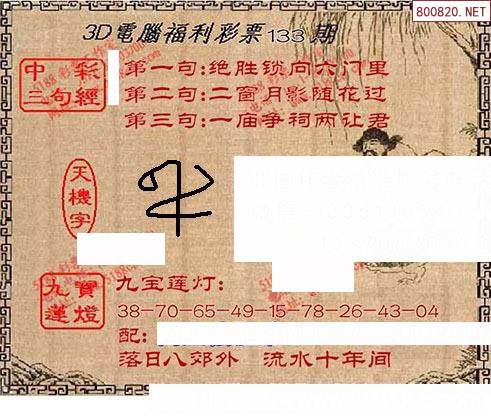 800820.NET
3D電腦福利彩票133期
中彩
三句經
第一句:绝胜锁向六门里
第二句:二窗月影随花过
第三句:一庙争祠两让君
天機字
九寶
蓮燈
九宝莲灯:
38-70-65-49-15-78-26-43-04
配:
落日八郊外 流水十年间